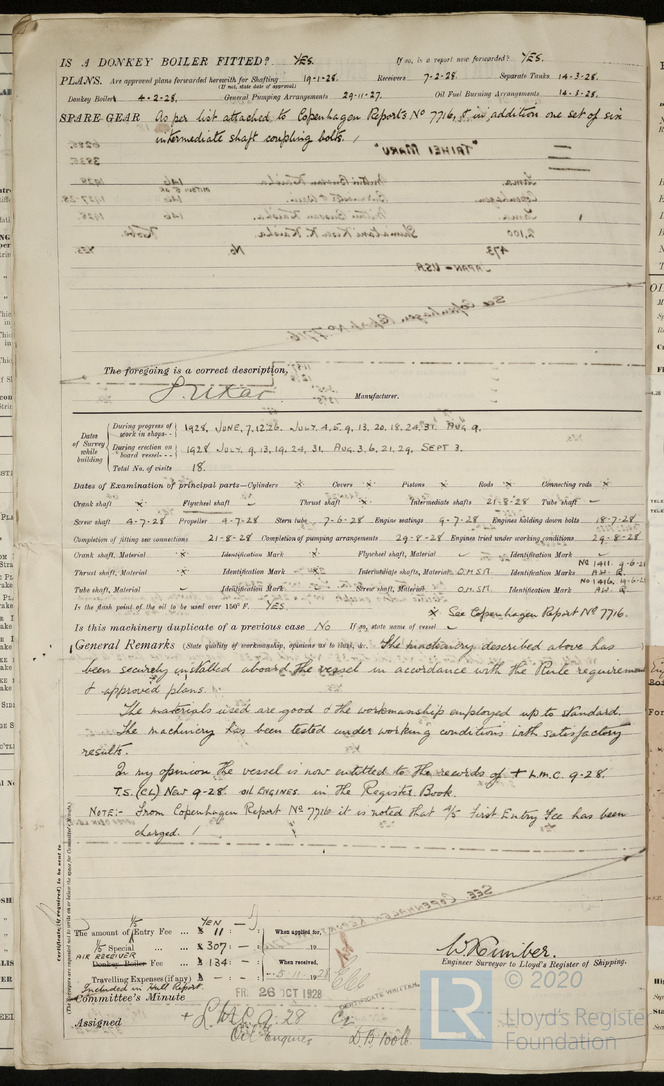 IS A DONKEY BOILER FITTED? YES. If so, is a report now forwarded? YES.
PLANS. Are approved plans forwarded herewith for Shafting 19-1-28. Receivers 7-2-28. Separate Tanks 14-3-28.
(If not, state date of approval)
Donkey Boilers 4-2-28. General Pumping Arrangements 29-11-27. Oil Fuel Burning Arrangements 14-3-28.
SPARE GEAR As per list attached to Copenhagen Report's No 7716, & in addition one set of six
intermediate shaft coupling bolts.
The foregoing is a correct description,
Manufacturer.
Dates of Survey while building
During progress of work in shops-- 1928. JUNE, 7, 12, 26. JULY, 4, 5, 9, 13, 20, 18, 24, 31. AUG 9.
During erection on board vessel--- 1928 JULY, 9, 13, 19, 24, 31. AUG. 3, 6, 21, 29, SEPT 3.
Total No. of visits 18.
Dates of Examination of principal parts—Cylinders × Covers × Pistons × Rods × Connecting rods ×
Crank shaft × Flywheel shaft Thrust shaft × Intermediate shafts 21-8-28 Tube shaft
Screw shaft 4-7-28 Propeller 4-7-28 Stern tube 7-6-28 Engine seatings 9-7-28 Engines holding down bolts 18-7-28
Completion of fitting sea connections 21-8-28 Completion of pumping arrangements 29-8-28 Engines tried under working conditions 29-8-28
Crank shaft, Material × Identification Mark × Flywheel shaft, Material Identification Mark
No 1411.
Thrust shaft, Material × Identification Mark × Intermediate shafts, Material O.H.SM. Identification Marks
No 1416.
Tube shaft, Material Identification Mark Screw shaft, Material O.H.SM. Identification Mark
Is the flash point of the oil to be used over 150° F. YES.
× See Copenhagen Report No 7716.
Is this machinery duplicate of a previous case No If so, state name of vessel
General Remarks (State quality of workmanship, opinions as to class, &c. The machinery described above has
been securely installed aboard the vessel in accordance with the Rule requirements
& approved plans.
The materials used are good & the workmanship employed up to standard.
The machinery has been tested under working conditions with satisfactory
results.
In my opinion the vessel is now entitled to the records of + L.M.C. 9-28.
T.S. (CL) New 9-28 OIL ENGINES in the Register Book.
NOTE:- From Copenhagen Report No 7716 it is noted that 4/5 First Entry Fee has been
charged.
1/5 YEN
The amount of Entry Fee ... 11: When applied for,
1/5 Special ... 307: 19
AIR RECEIVER
Donkey Boiler Fee ... 134: When received,
Travelling Expenses (if any)
Included in Hull Report.
Engineer Surveyor to Lloyd's Register of Shipping.
Committee's Minute FRI. 26 OCT 1928
CERTIFICATE WRITTEN
Assigned + L.M.C. 9.28
Oil Engines
© 2020
LR
Lloyd's Register
Foundation